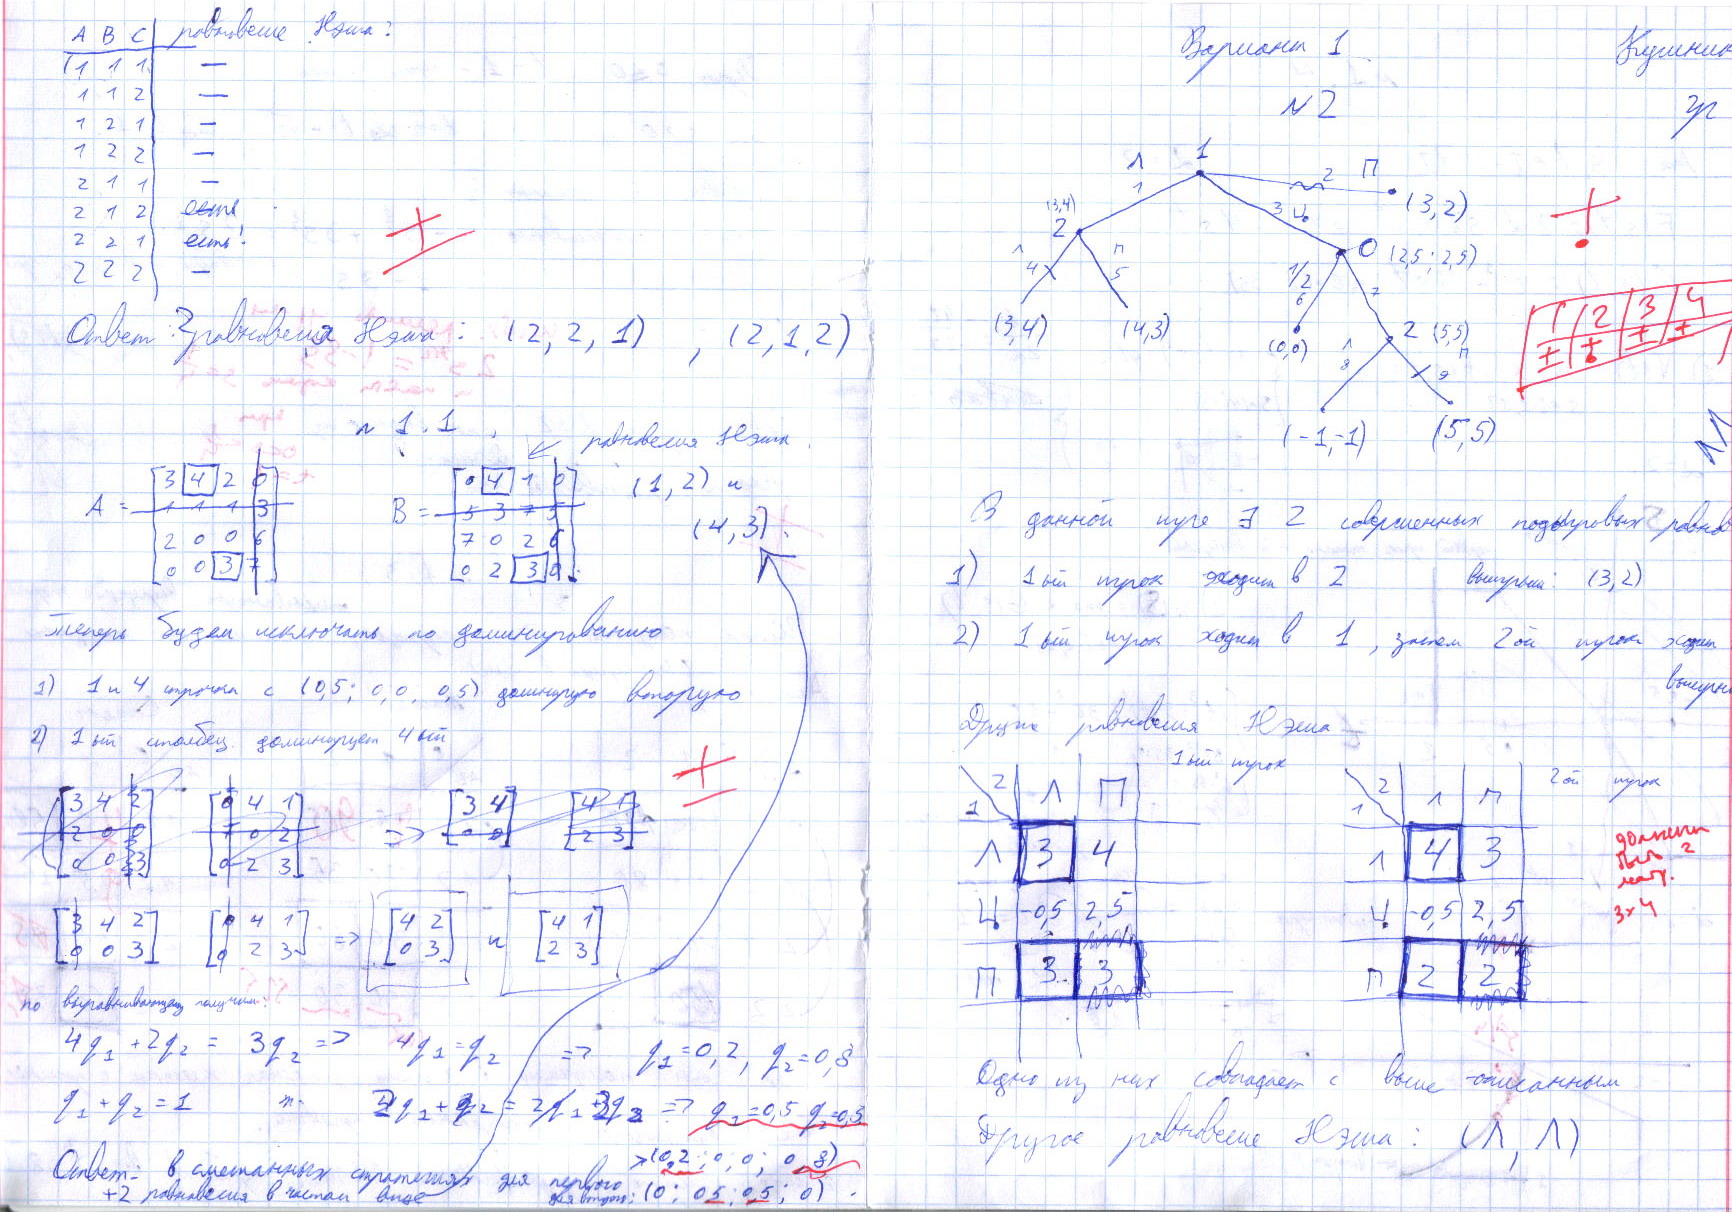 A B C равновесие Нэша:
1 1 1 —
1 1 2 —
1 2 1 —
1 2 2 —
2 1 1 —
2 1 2 есть
2 2 1 есть!
2 2 2 —
±
Ответ: 2 равновесия Нэша: (2, 2, 1), (2, 1, 2)
№ 1.1
равновесия Нэша
A = [3 4 2 0
1 1 1 3
2 0 0 6
0 0 3 7]
B = [0 4 1 0
5 3 7 5
7 0 2 6
0 2 3 0]
(1, 2) и
(4, 3).
Теперь будем исключать по доминированию
1) 1 и 4 строчка с (0,5; 0, 0, 0,5) доминирую вторую
2) 1ый столбец доминирует 4ый
±
[3 4 2
2 0 0
0 0 3]
[0 4 1
7 0 2
0 2 3]
=>
[3 4
0 0]
[4 1
2 3]
[3 4 2
0 0 3]
[0 4 1
0 2 3]
=>
[4 2
0 3]
и
[4 1
2 3]
по выравнивающему получим:
4q1 + 2q2 = 3q2 => 4q1 = q2 => q1 = 0,2, q2 = 0,8
q1 + q2 = 1
=> q1 = 0,5 q2 = 0,5
Ответ: в смешанных стратегиях для первого (0,2; 0; 0; 0,8)
+2 равновесия в чистом виде для второго: (0; 0,5; 0,5; 0).
Вариант 1
№2
1
Л
1
2
П
(3,2)
3 Ц
(3,4)
2
0 (2,5; 2,5)
Л
4
П
5
1/2
6
7
(3,4)
(4,3)
(0,0)
2 (5,5)
Л
8
П
9
(-1,-1)
(5,5)
1 2 3 4
± + ± ±
В данной игре ∃ 2 совершенных подыгровых равнов
1) 1ый игрок ходит в 2 выигрыш: (3,2)
2) 1ый игрок ходит в 1, затем 2ой игрок ходит
выигры
Другие равновесия Нэша
1ый игрок
2
1
Л П
Л 3 4
Ц -0,5 2,5
П 3 3
2ой игрок
2
1
Л П
Л 4 3
Ц -0,5 2,5
П 2 2
должны
быть 2
матр.
3x4
Одно из них совпадает с выше описанным
Другое равновесие Нэша: (Л, Л)